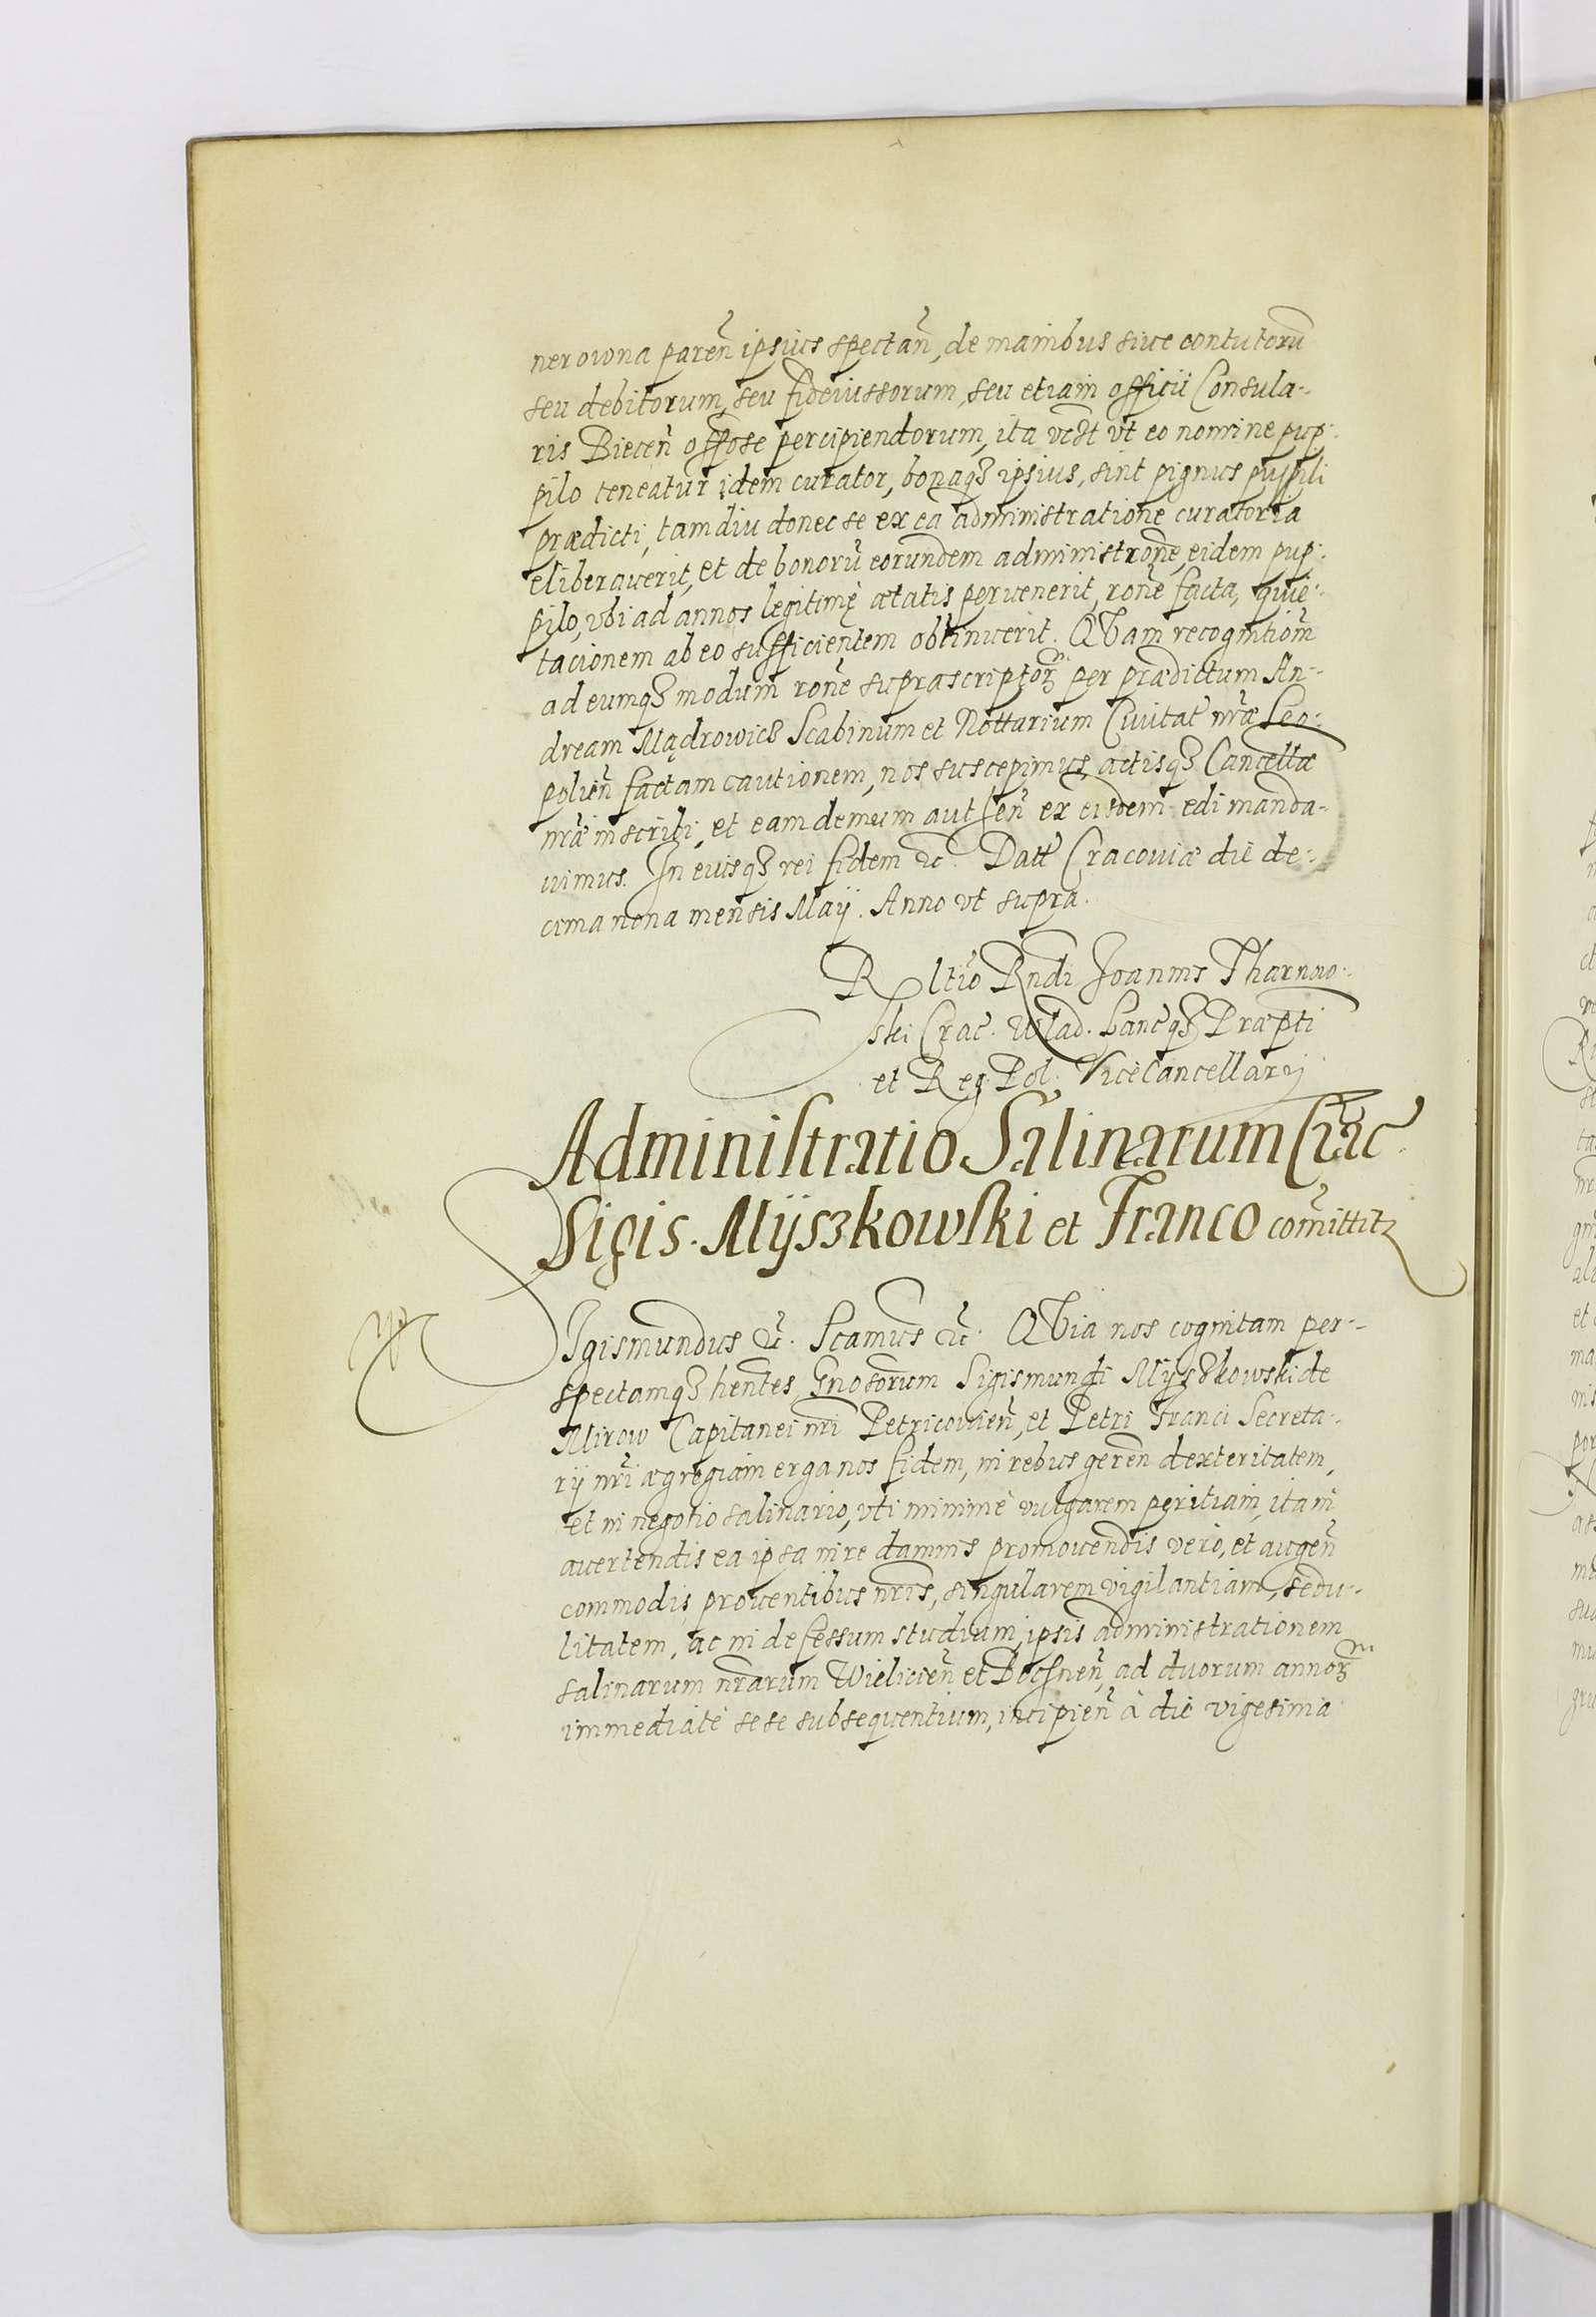 nerowna pareñ ipsius spectañ, de manibus sive contutorũ
seu debitorum, seu fideiussorum, seu etiam officii Consula-
ris Bieceñ offose percipiendorum, ita vt eo nomine pup-
pilo teneatur idem curator, bonaqȝ ipsius, sint pignus puppili
prædicti, tam diu donec se ex ea administratione curatoria
eliberaverit, et de bonorũ eorundem administrõne, eidem pup-
pilo, vbi ad annos legitimę ætatis pervenerit, rõne facta, quie-
tacionem ab eo sufficientem obtinuerit. QVam recognitiom̃
ad eumqȝ modum rõne suprascriptoȝ per prædictum An-
dream Mądrowicz Scabinum et Nottarium Civitat nr̃æ Leo-
polieñ factam cautionem, nos suscepimus, actisqȝ Cancellæ
nr̃æ inscribi, et eam demum aut feñ ex eisdem edi manda-
uimus. In cuiusqȝ rei fidem &c. Datt Cracoviæ die de-
cima nona mensis Maij. Anno vt supra.
Rltio Rndi Joannis Tharnow-
ski Crac. Wlad. Lancqȝ Præpti
et Reg. Pol. ViceCancellarij
Administratio Salinarum Crac.
Sigis. Myszkowski et Franco com̃ittitȝ
SIgismundus &c. Scamus &c. QVia nos cognitam per-
spectamqȝ hentes Gnosorum Sigismundi Myszkowski de
Mirow Capitanei nr̃i Petricovieñ, et Petri Franci Secreta-
rij nr̃i ægregiam erga nos fidem, in rebus gereñ dexteritatem,
et in negotio salinario, vti minimè vulgarem peritiam, ita in
avertendis ea ipsa in re damnis promovendis verò, et augeñ
commodis proventibus nr̃is, singularem vigilantiam, sedu-
litatem, ac indefessum studium, ipsis administrationem
salinarum nr̃arum Wielicieñ et Bochneñ, ad duorum annoȝ
immediatè sese subsequentium, incipieñ à die vigesima